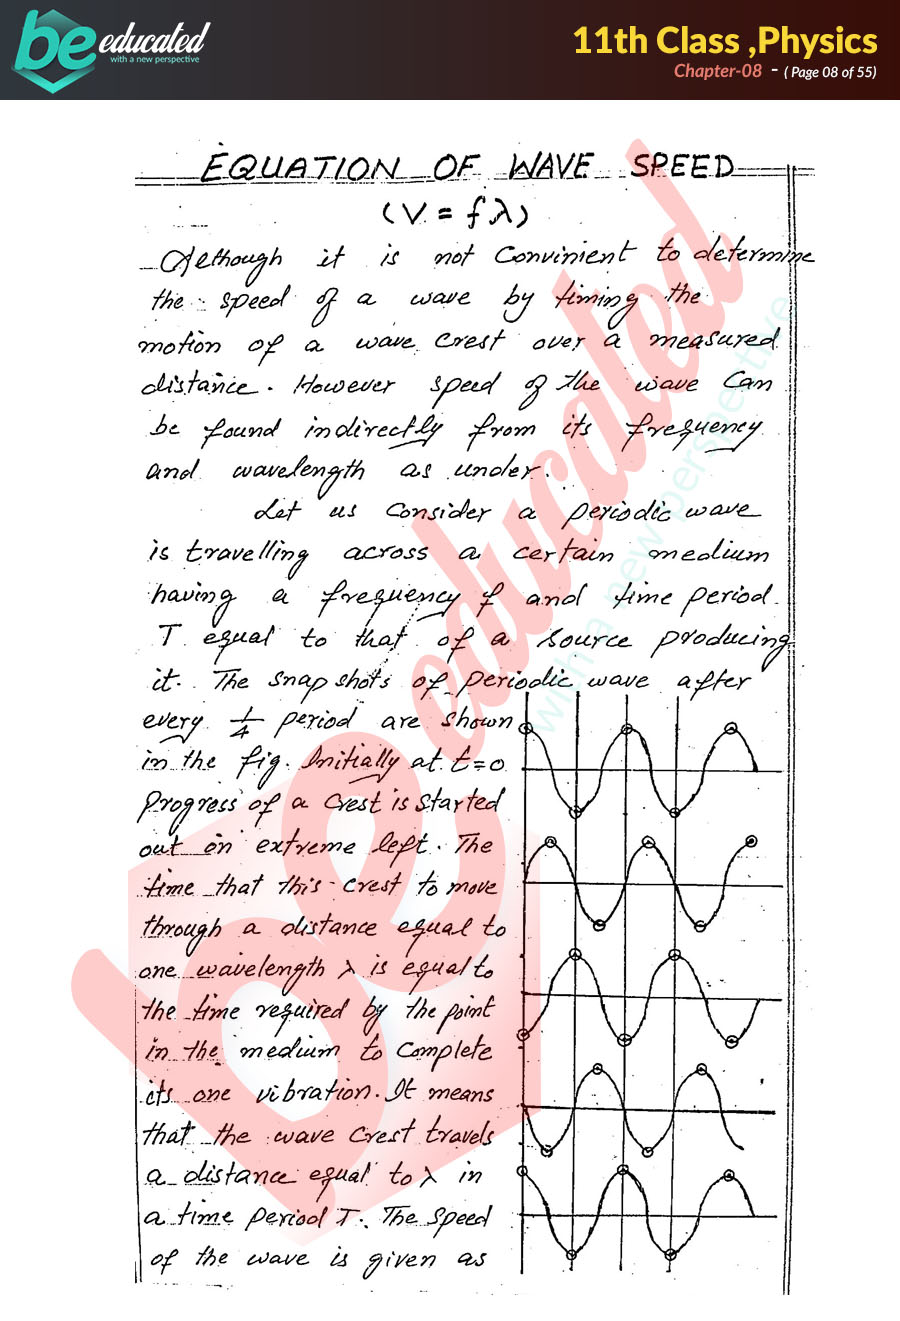 be educated
with a new perspective
11th Class ,Physics
Chapter-08 - ( Page 08 of 55)
EQUATION OF WAVE SPEED
(V = fλ)
Although it is not Convinient to determine
the speed of a wave by timing the
motion of a wave Crest over a measured
distance. However speed of the wave Can
be found indirectly from its frequency
and wavelength as under.
Let us Consider a periodic wave
is travelling across a certain medium
having a frequency f and time period
T equal to that of a source producing
it. The snap shots of periodic wave after
every 1/4 period are shown
in the fig. Initially at t=0
Progress of a Crest is started
out on extreme left. The
time that this crest to move
through a distance equal to
one wavelength λ is equal to
the time required by the point
in the medium to Complete
its one vibration. It means
that the wave Crest travels
a distance equal to λ in
a time Period T. The Speed
of the wave is given as
be educated
with a new perspective